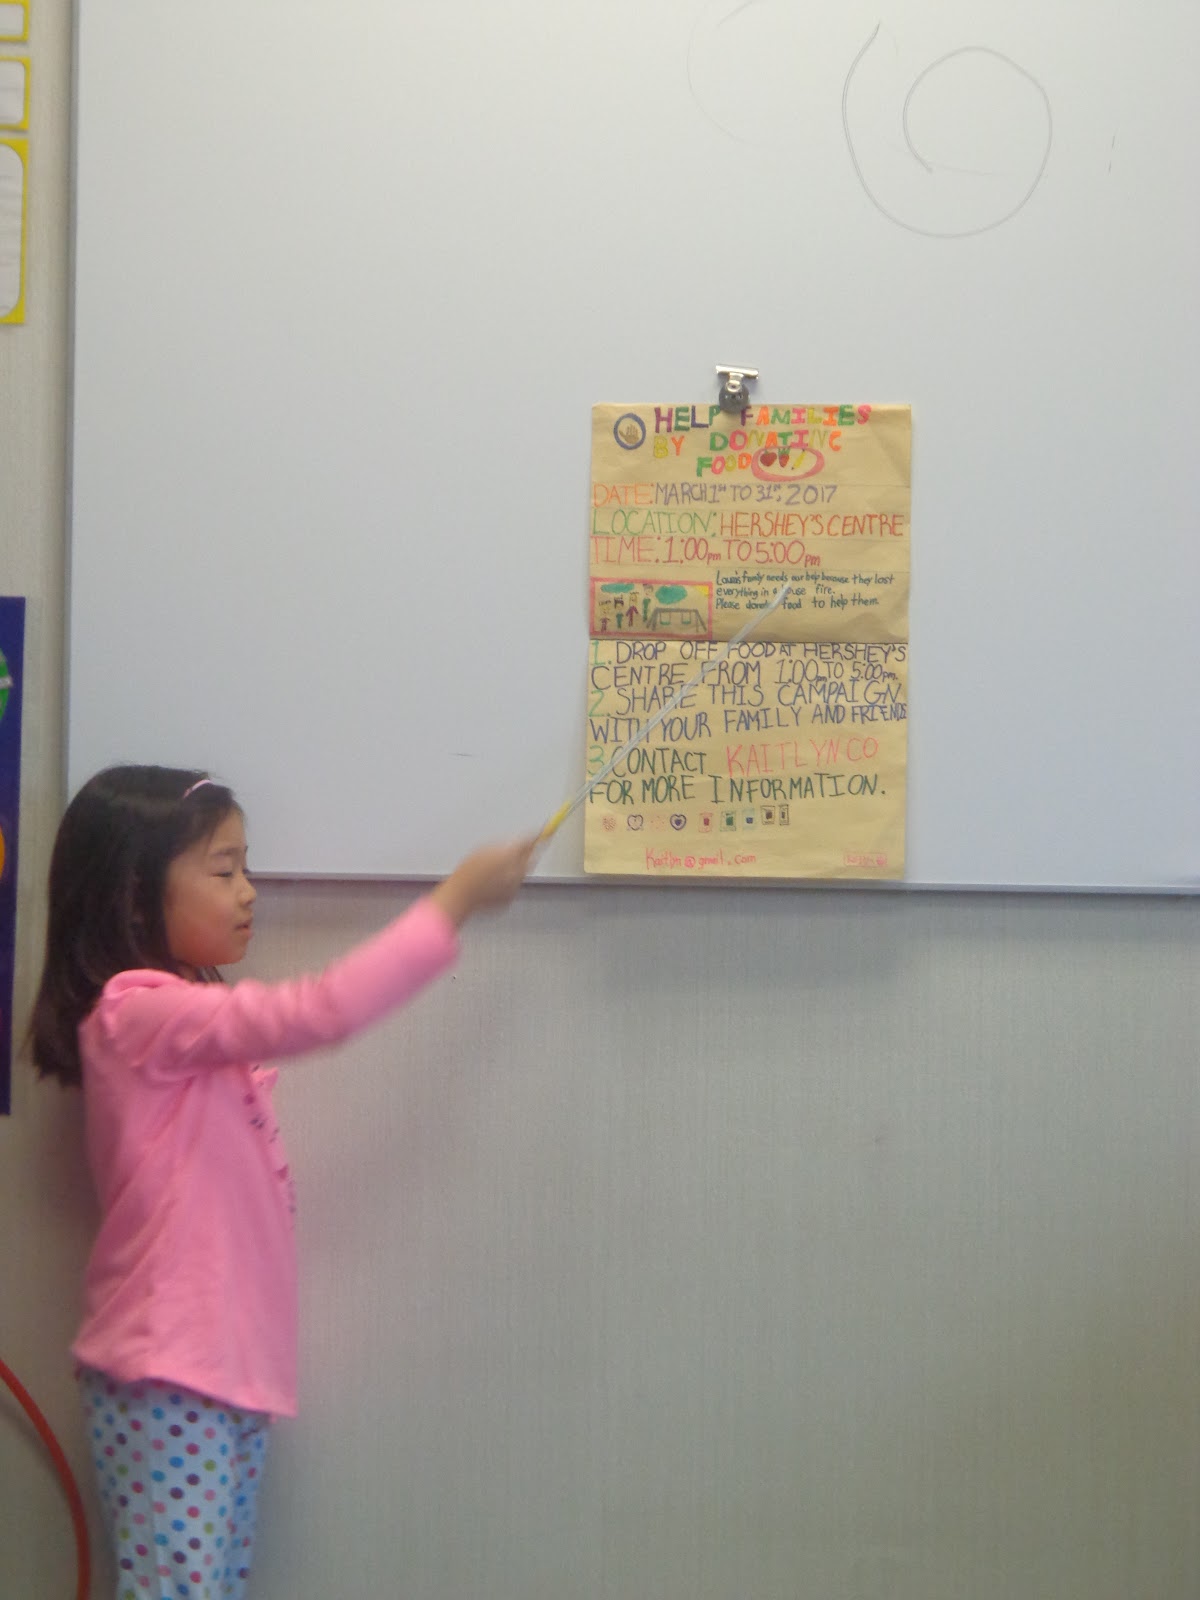 HELP FAMILIES
BY DONATING
FOOD
DATE: MARCH 1ST TO 31ST, 2017
LOCATION: HERSHEY'S CENTRE
TIME: 1:00pm TO 5:00pm
family needs our help because they lost
everything in a house fire.
Please donate food to help them.
1. DROP OFF FOOD AT HERSHEY'S
CENTRE FROM 1:00pm TO 5:00pm.
2. SHARE THIS CAMPAIGN
WITH YOUR FAMILY AND FRIENDS
3. CONTACT KAITLYN CO
FOR MORE INFORMATION.